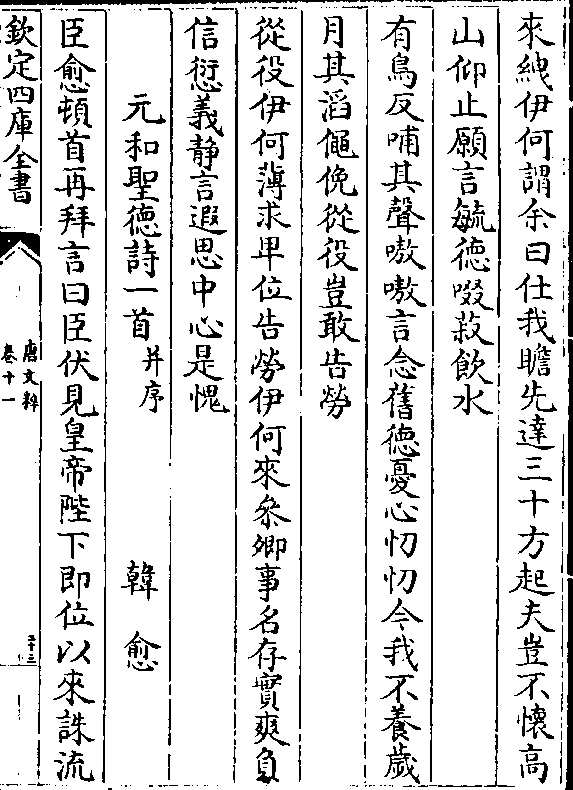 來綍伊何謂余曰仕我瞻先達三十方起夫豈不懷高
山仰止願言毓德啜菽飲水
有鳥反哺其聲嗷嗷言念舊德憂心忉忉今我不養歲
月其滔僶俛從役豈敢告勞
從役伊何薄求卑位告勞伊何來叅卿事名存實爽負
信愆義靜言遐思中心是愧
元和聖德詩一首并序 韓愈
臣愈頓首再拜言曰臣伏見皇帝陛下即位以來誅流
欽定四庫全書
唐文粹
卷十一
三十三